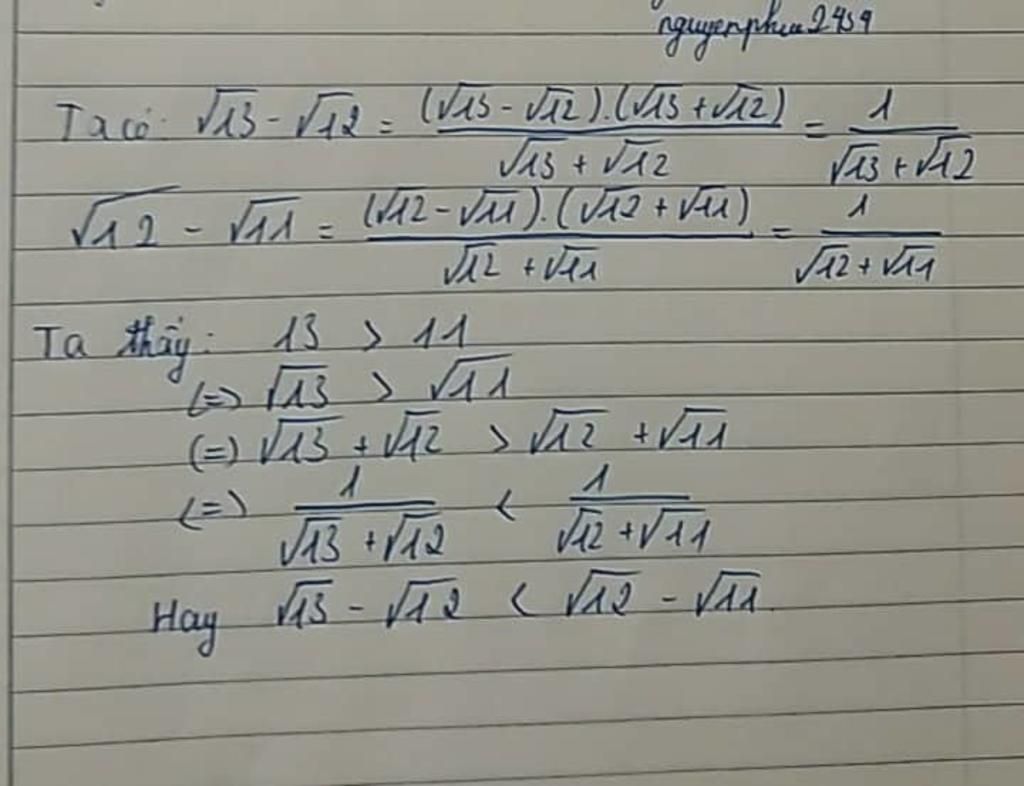 nguyenphuc2459
Ta có: √13 - √12 = (√13 - √12).(√13 + √12) / √13 + √12 = 1 / √13 + √12
√12 - √11 = (√12 - √11).(√12 + √11) / √12 + √11 = 1 / √12 + √11
Ta thấy: 13 > 11
(=) √13 > √11
(=) √13 + √12 > √12 + √11
(=) 1 / √13 + √12 < 1 / √12 + √11
Hay √13 - √12 < √12 - √11.